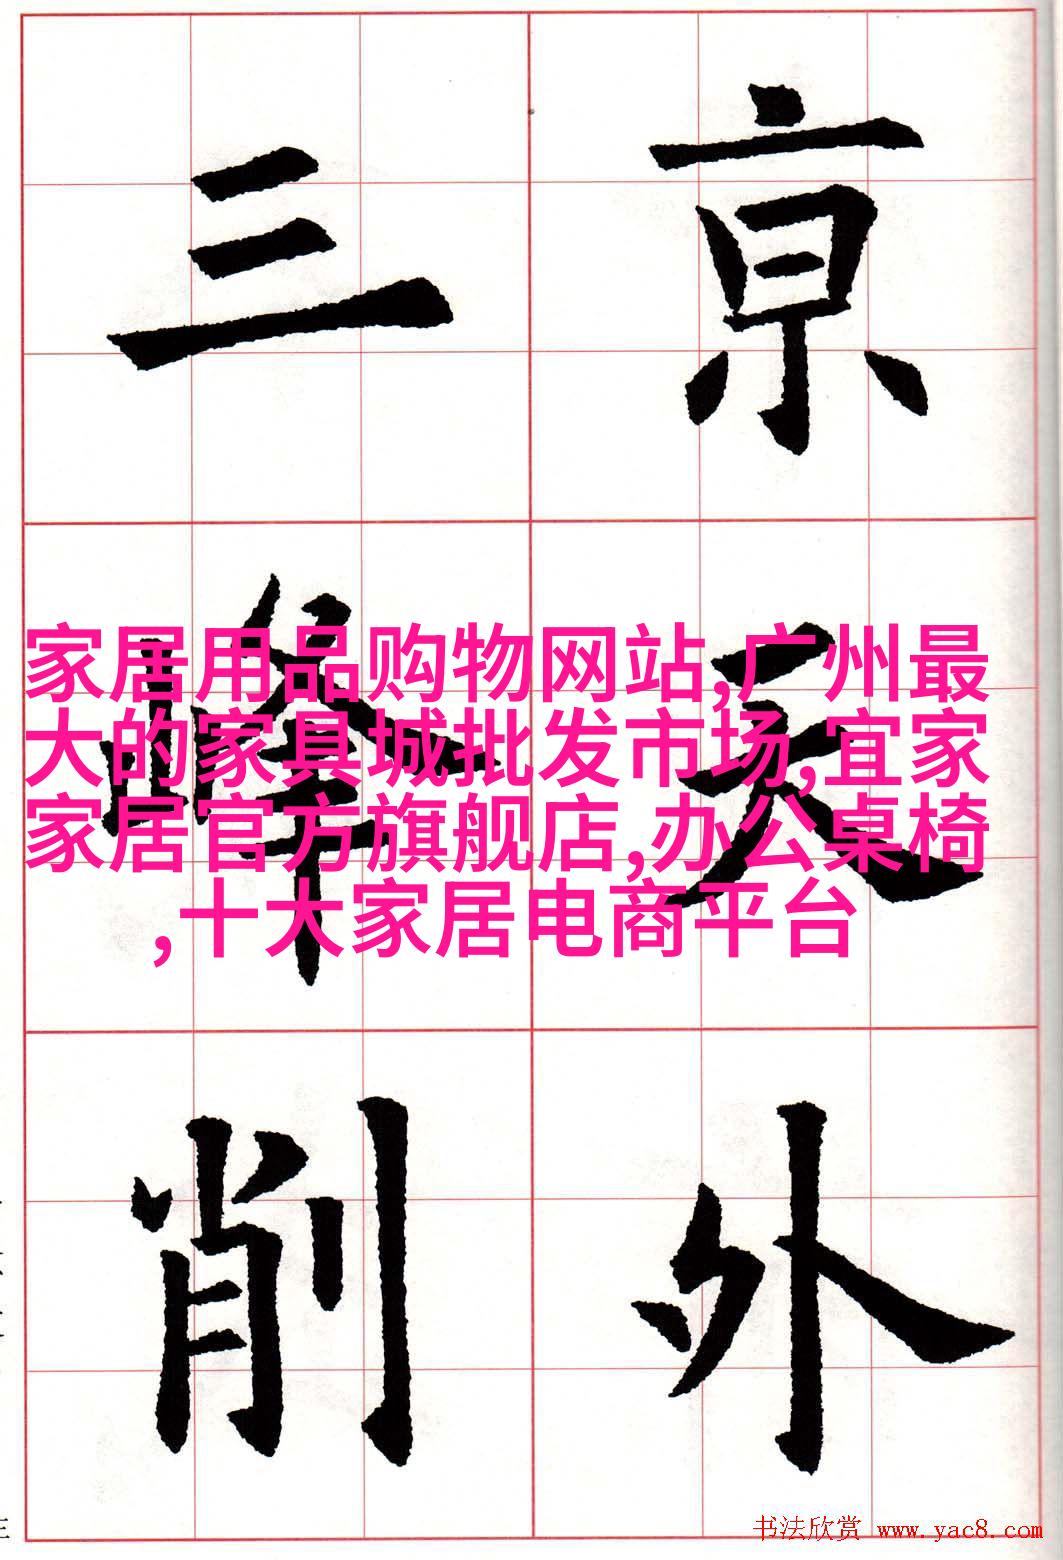 亰天外
三峰削
家居用品购物网站,广州最
大的家具城批发市场,宜家
家居官方旗舰店,办公桌椅
,十大家居电商平台
书法欣赏 www.yac8.com